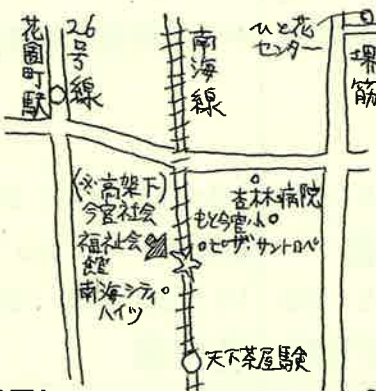 花園町駅
26号線
南海線
ひと花
センター
堺筋
(※高架下)
今宮社会
福祉会館
南海シティ
ハイツ
杏林病院
もと今宮小
ピザ・サントロペ
天下茶屋駅